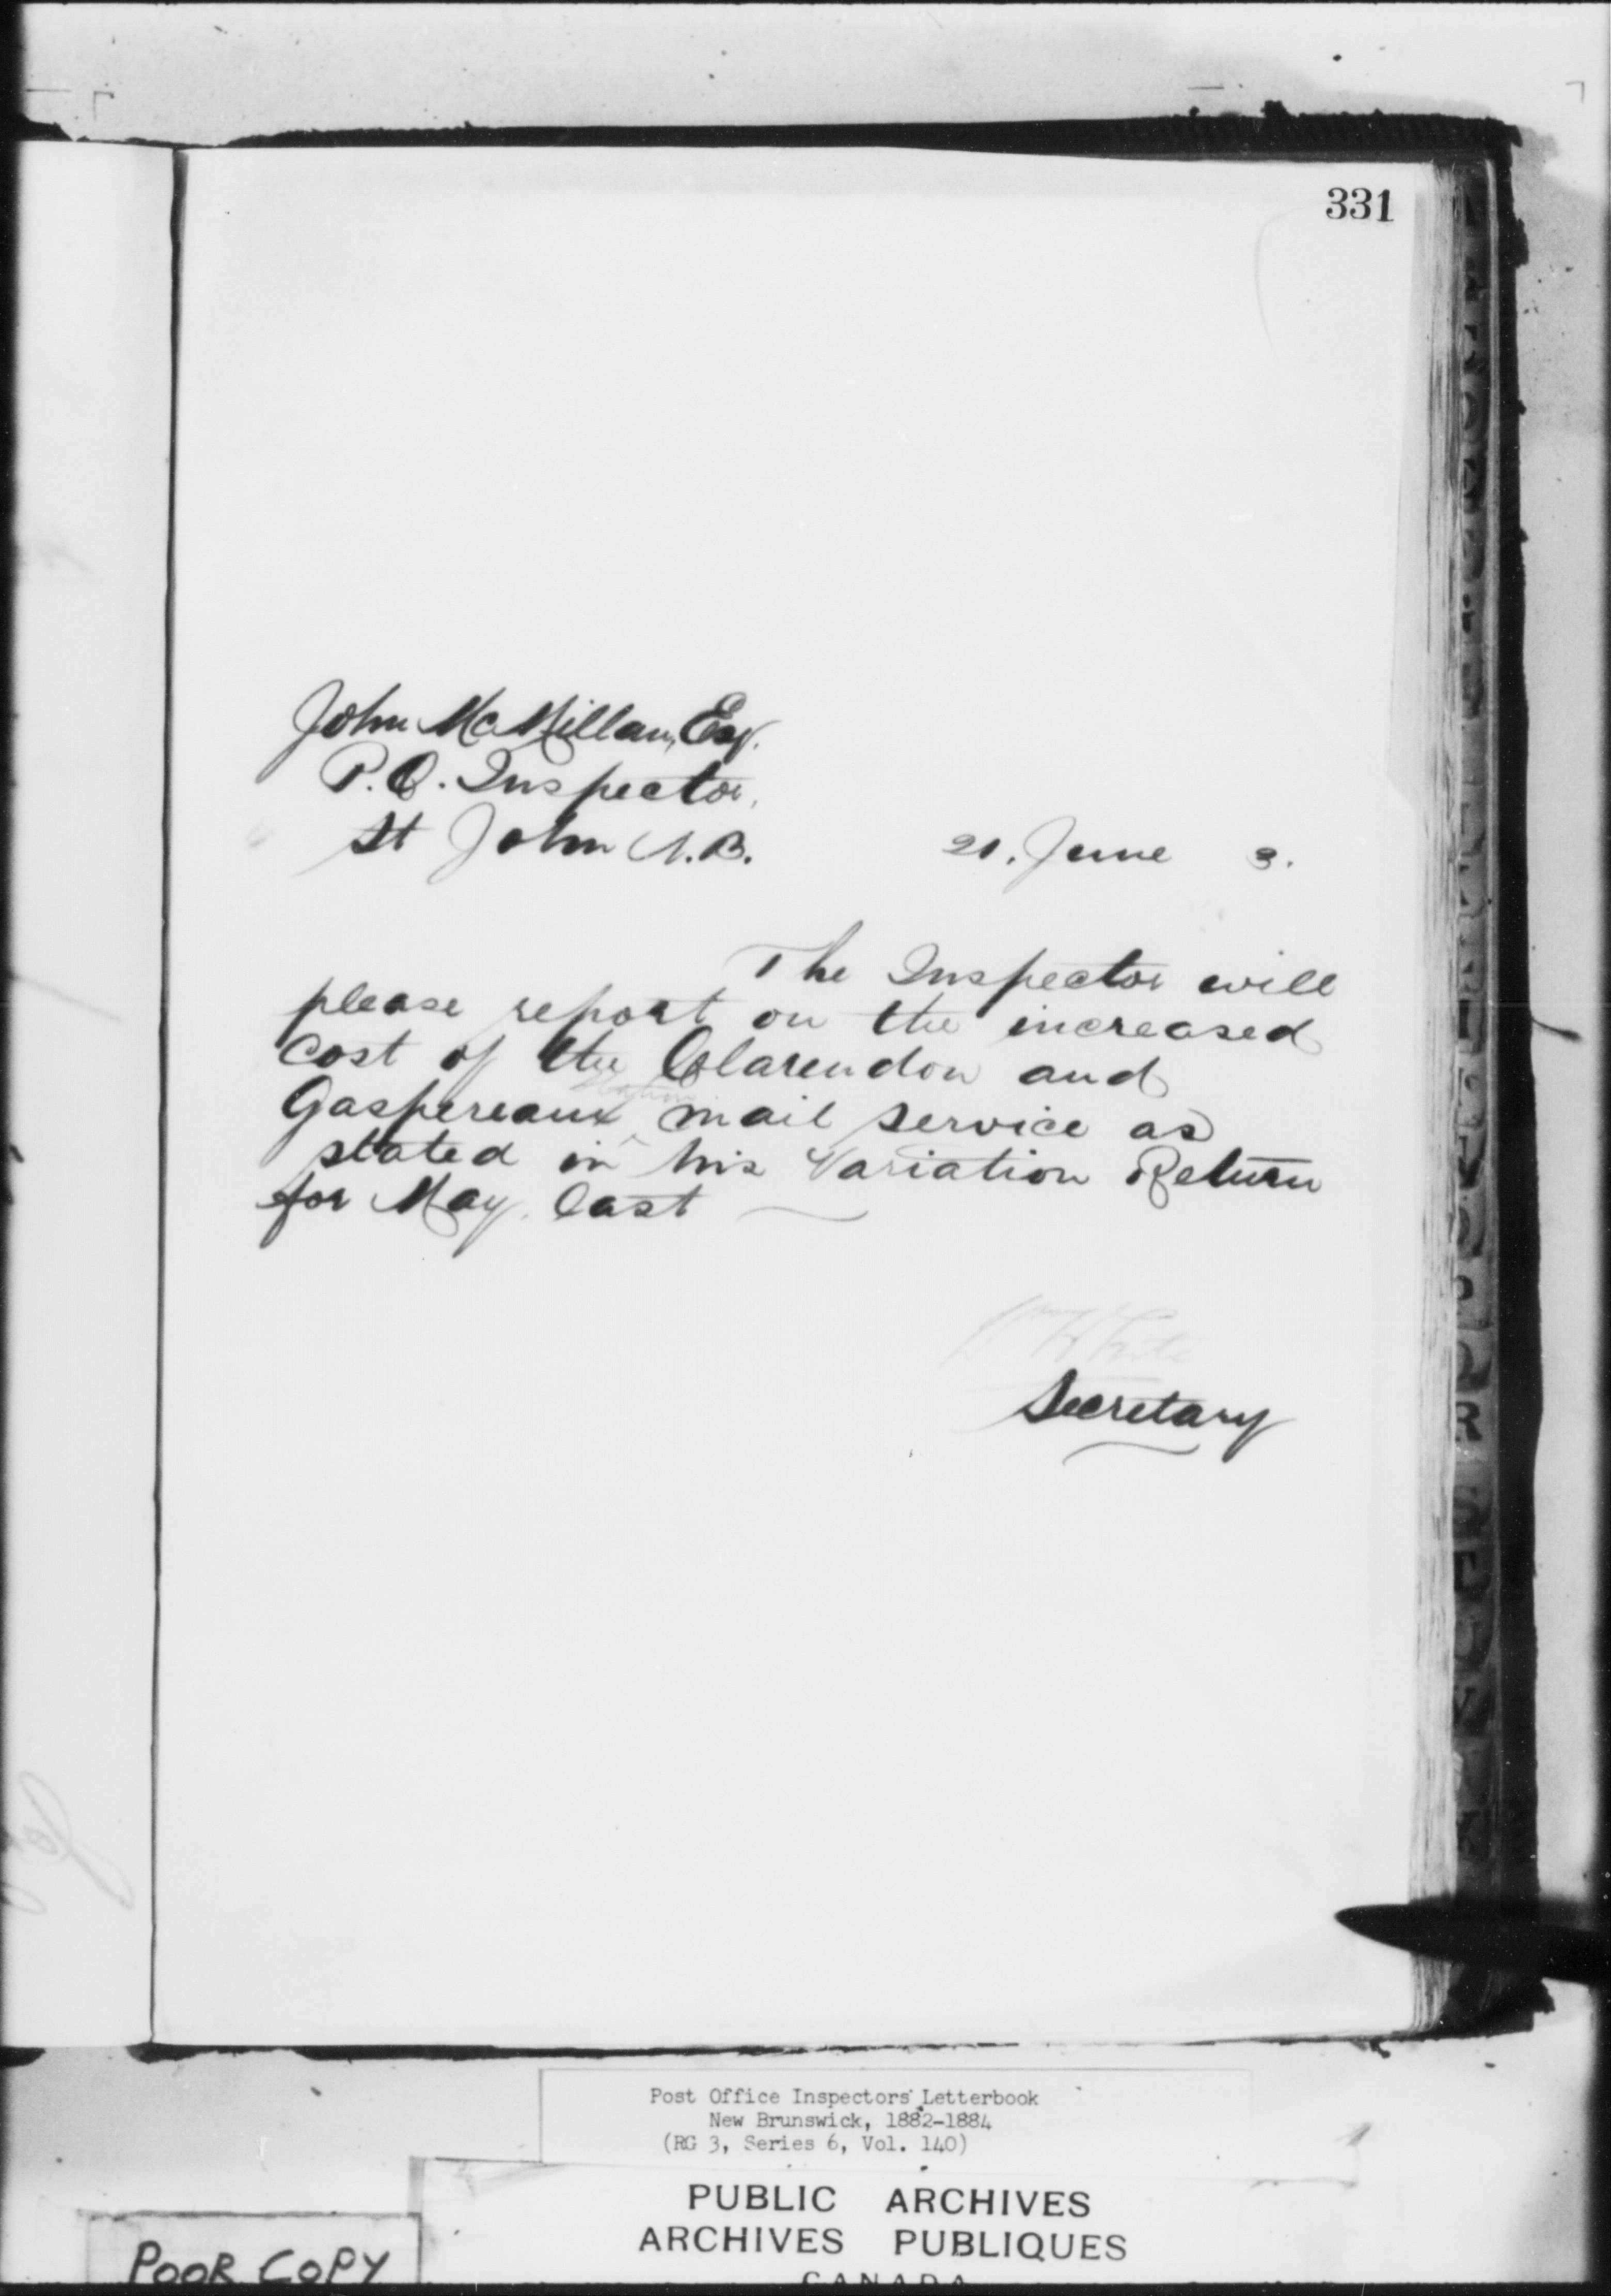 331
John McMillan, Esq.
P.O. Inspector,
St John N.B. 21. June 3.
The Inspector will
please report on the increased
cost of the Clarendon and
Station
Gaspereaux mail service as
stated in his Variation Return
for May last
White
Secretary
Post Office Inspectors' Letterbook
New Brunswick, 1882-1884
(RG 3, Series 6, Vol. 140)
PUBLIC ARCHIVES
ARCHIVES PUBLIQUES
CANADA
POOR COPY